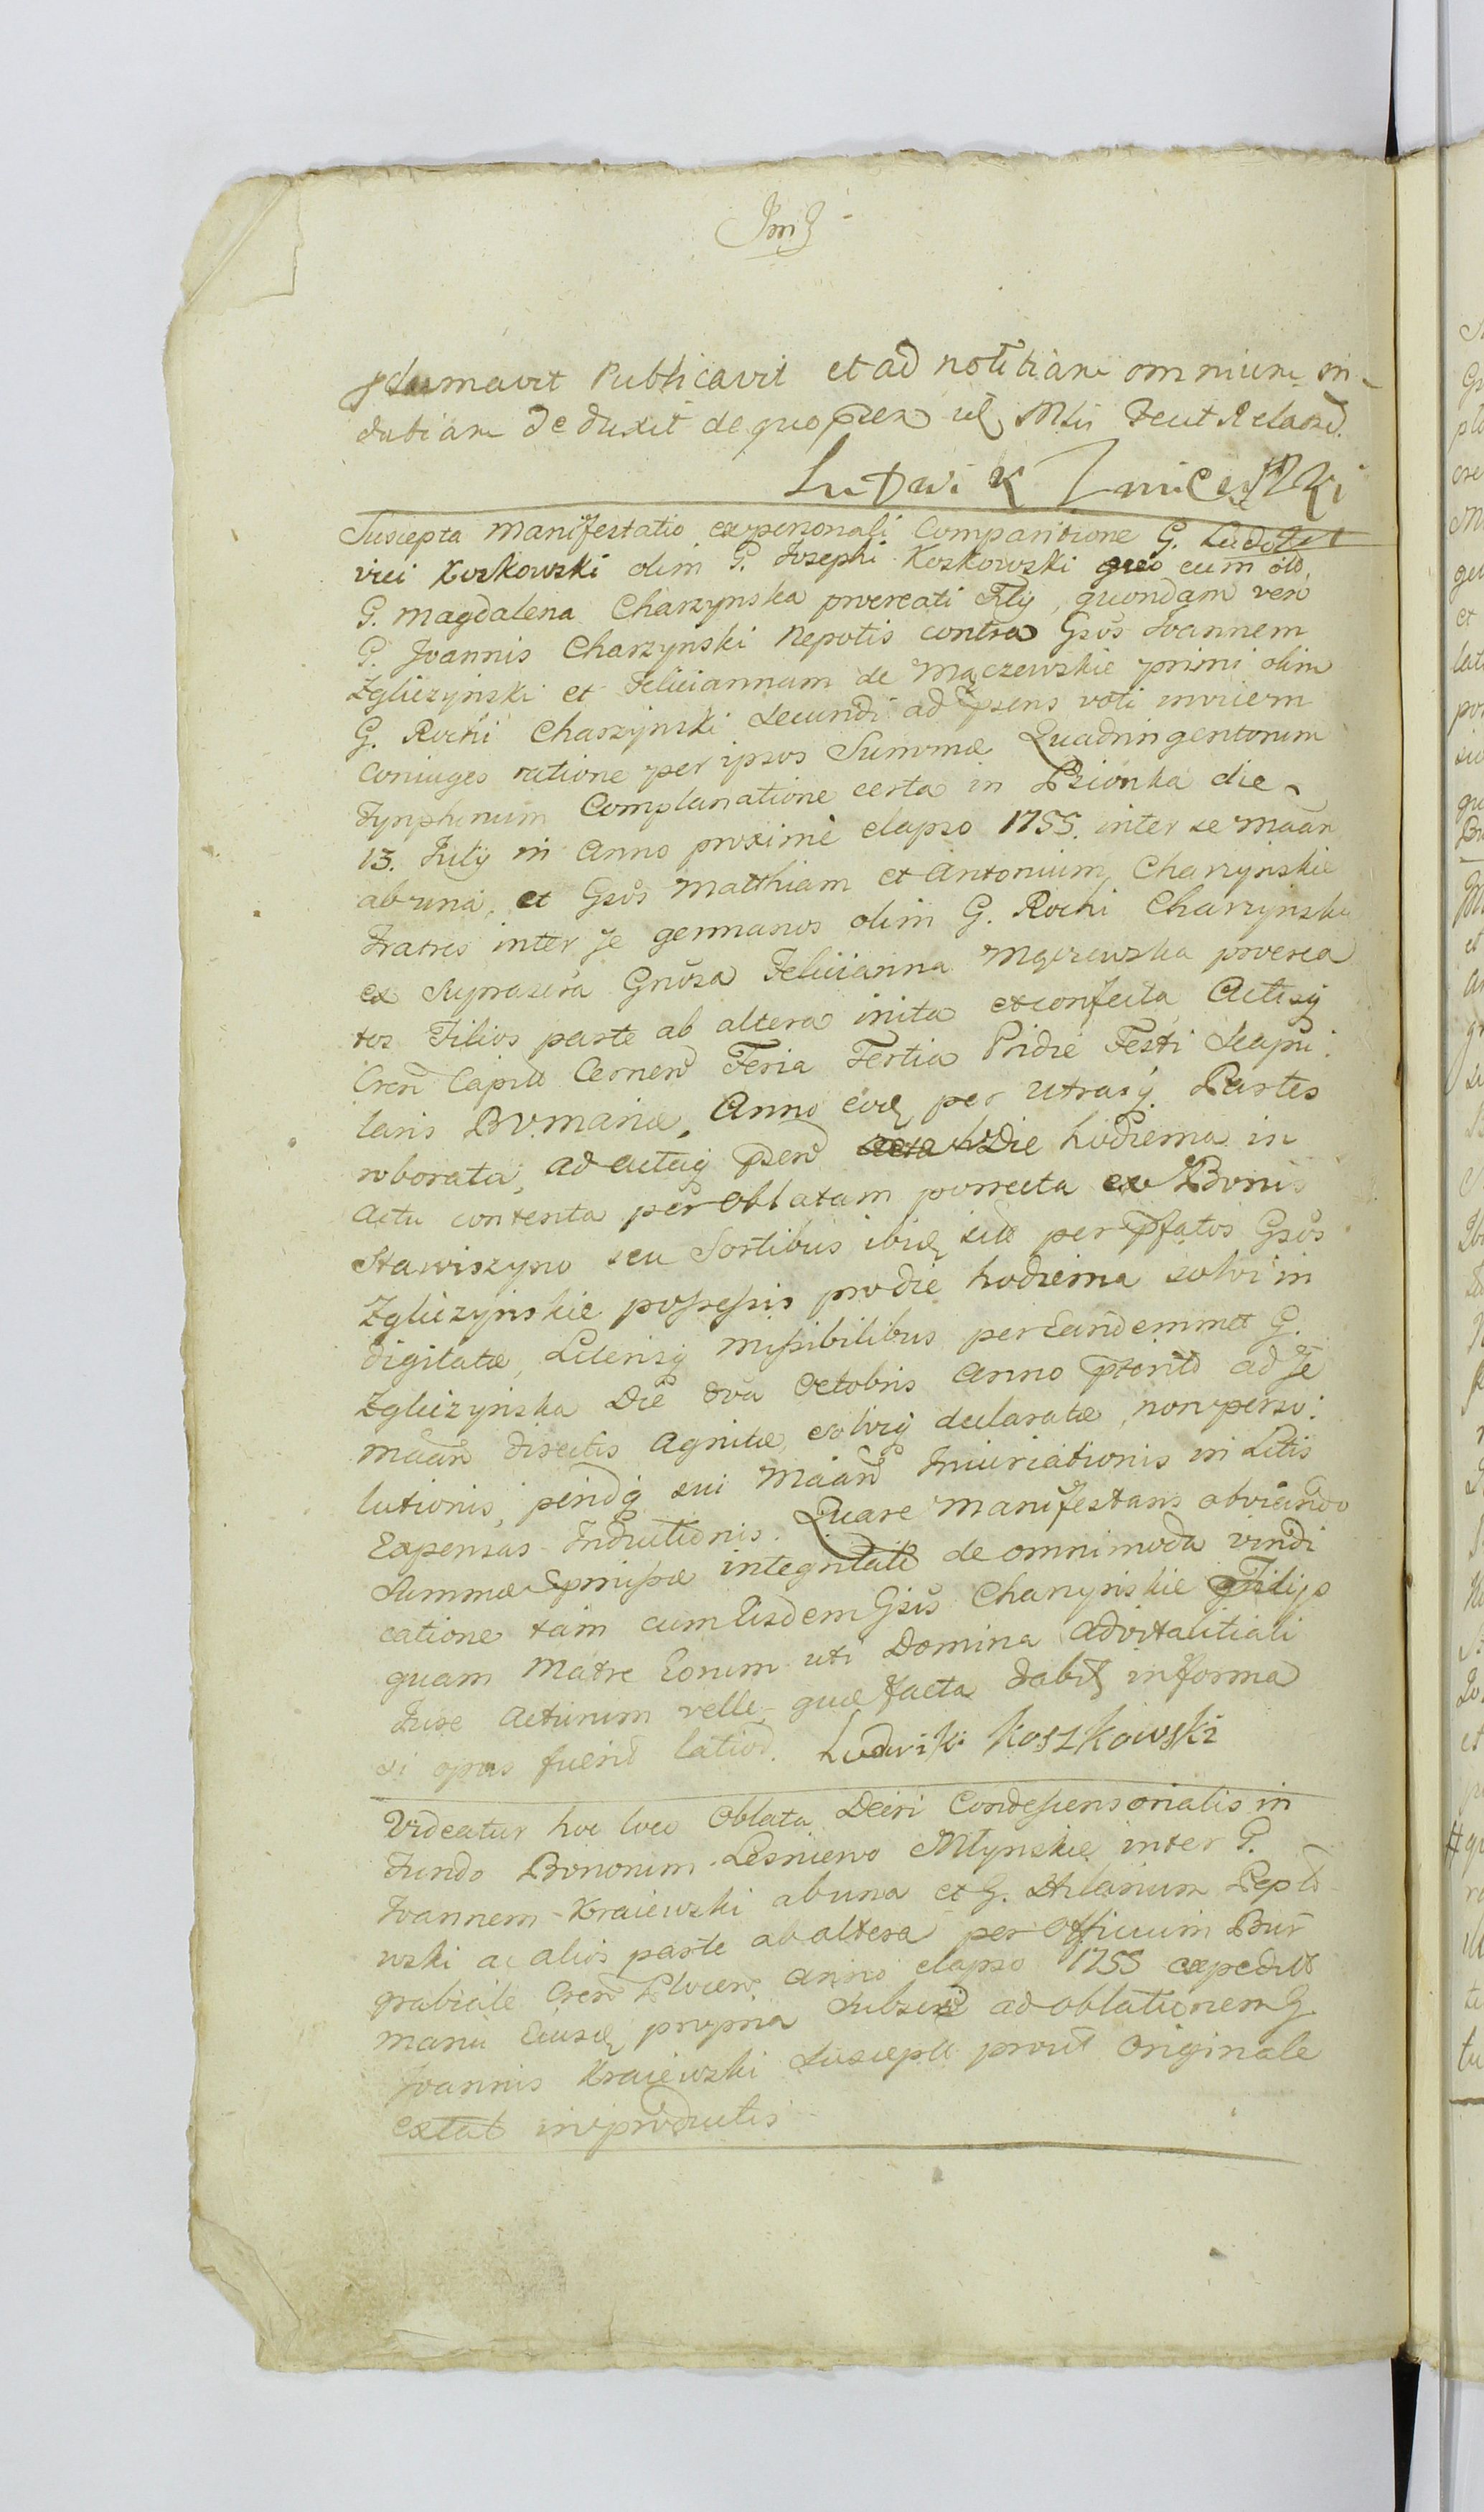 Publicavit et ad notitiam omnium in
dubiam deduxit de quo Mlii
Ludwik
Suscepta Manifestatio ex personali Comparitione G. Ludo
vici Koskowski olim G. Josephi Koskowski cum olo
G. Magdalena Charzynska procreati Filÿ, quondam vero
G. Joannis Charzynski Nepotis contra Gsos Joannem
Zgliczynski et Feliciannam de Mączewskie primi olim
G. Rochi Charzynski Secundi ad psens voti invicem
Coniuges ratione per ipsos Summæ Quadringentorum
Tynphonum Complanatione certa in Pzionka die
13. Julÿ in Anno proxime elapso 1755. inter se maan
ab una, et Gsos Matthiam et Antonium Charzynskie
Fratres inter se germanos olim G. Rochi Charzynski
ex Suprascra Gnosa Felicianna Mączewska procrea
tos Filios parte ab altera inita et confecta, Actisq
Cren Capitt Cernen Feria Tertia Pridie Festi Scapu
laris B.V. Mariæ, Anno eod per utrasq Partes
roborata, ad actaq psen Die hodierna in
actu contenta per Oblatam porrecta ex Bonis
Stawiszyno seu Sortibus ibid sitt per pfatos Gsos
Zgliczynskie possessis pro die hodierna solvi in
digitatæ, Literisq missibilibus per Eandemmet G.
Zgliczynska Die 8va Octobris Anno ad se
maan directis Agnitæ, solviq declaratæ, non perso
lutionis, pendq sui maan Iniuriationis in Litis
Expensas Inductionis. Quare Manifestans obviando
Summæ pmissæ integritati de omnimoda vindi
catione tam cum Eisdem Gsis Charzynskie Filijs
quam Matre Eorum uti Domina advitalitiali
Jure Acturum velle, quæ facta dabit in forma
si opus fuerit latiod. Ludwik Koszkowski
Videatur hoc loco Oblata Dcri Condescensorialis in
Fundo Bonorum Lesniewo Młynskie inter G.
Joannem Kraiewski ab una et G. Hilarium Pepło
wski ac alios parte ab altera per Officium Bur
grabiale Cren anno elapso 1755 expedit
manu Eiusd propria Subscr ad oblationem G.
Joannis Kraiewski Suscept prout Originale
extat in productis